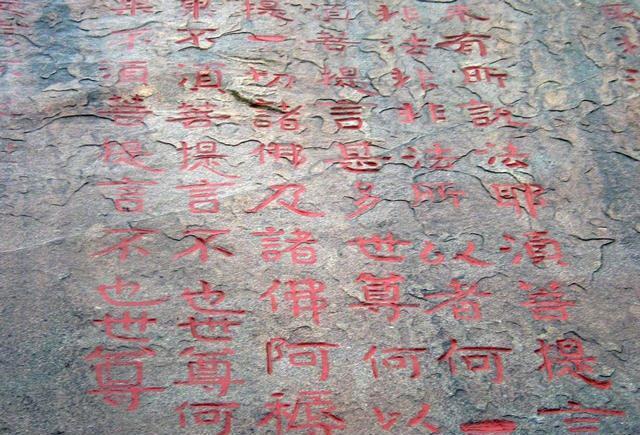 来有所說法耶湏菩提言
非法非非法所以者何一
湏菩提言甚多世尊何以
提一切諸佛及諸佛阿耨
果不湏菩提言不也世尊何
果不湏菩提言不也世尊